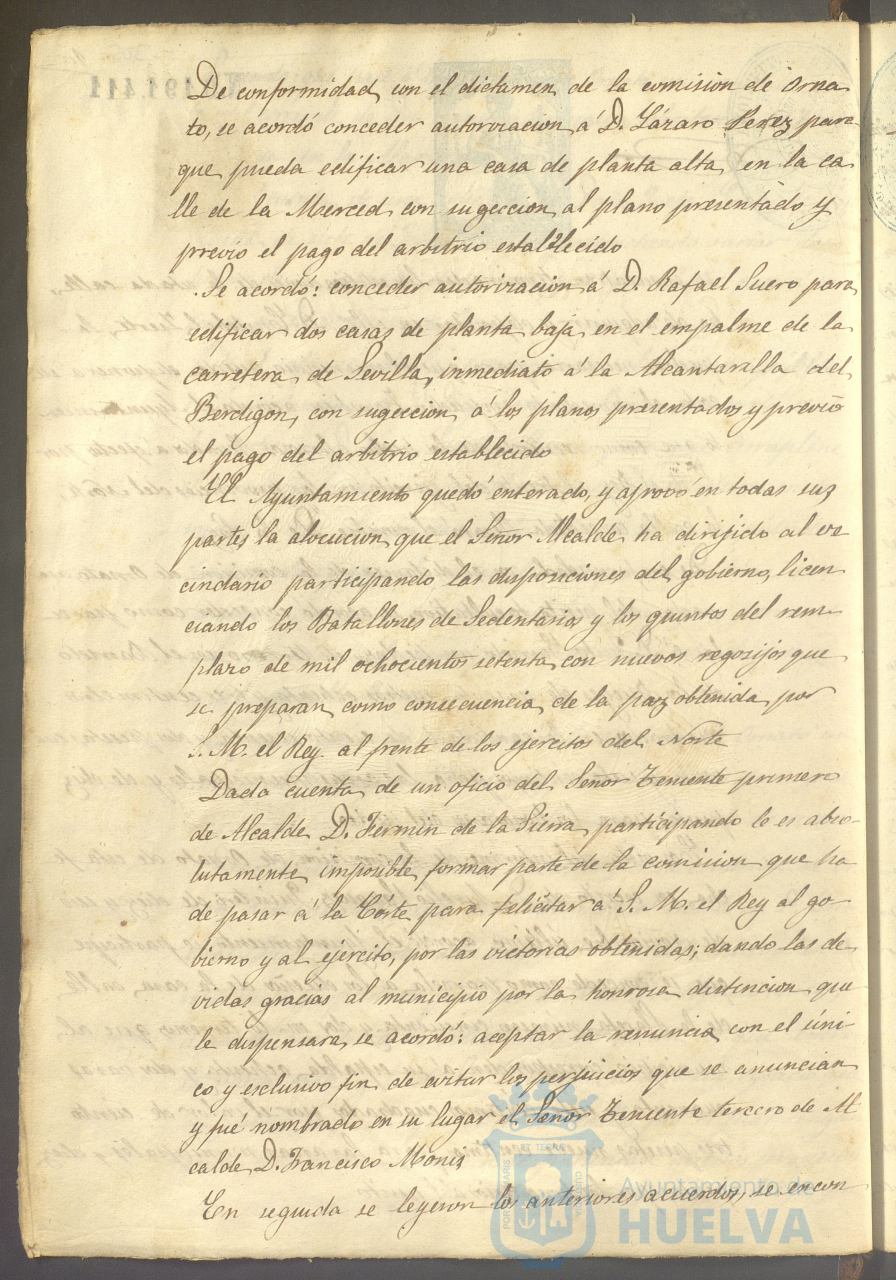 De conformidad con el dictamen de la comision de Orna
to, se acordó conceder autorizacion á D. Lázaro Perez para
que pueda edificar una casa de planta alta en la ca
lle de la Merced con sugeccion al plano presentado y
previo el pago del arbitrio establecido
Se acordó: conceder autorizacion á D. Rafael Suero para
edificar dos casas de planta baja en el empalme de la
carretera de Sevilla, inmediato á la Alcantarilla del
Berdigon, con sugeccion á los planos presentados y previo
el pago del arbitrio establecido
El Ayuntamiento quedó enterado, y aprovó en todas sus
partes la alocucion que el Señor Alcalde ha dirijido al ve
cindario participando las disposiciones del gobierno, licen
ciando los Batallones de Sedentarios y los quintos del rem-
plazo de mil ochocientos setenta, con nuevos regozijos que
se preparan como consecuencia de la paz obtenida por
S. M. el Rey al frente de los ejercitos del Norte
Dada cuenta de un oficio del Señor Teniente primero
de Alcalde D. Fermin de la Sierra, participando le es abso-
lutamente imposible formar parte de la comision que ha
de pasar á la Córte para felicitar á S. M. el Rey al go-
bierno y al ejercito, por las victorias obtenidas; dando las de-
vidas gracias al municipio por la honrosa distincion que
le dispensara, se acordó: aceptar la renuncia con el úni-
co y esclusivo fin de evitar los perjuicios que se anuncian
y fué nombrado en su lugar el Señor Teniente tercero de Al
calde D. Francisco Moniz
En seguida se leyeron los anteriores acuerdos, se encon
Ayuntamiento de
HUELVA